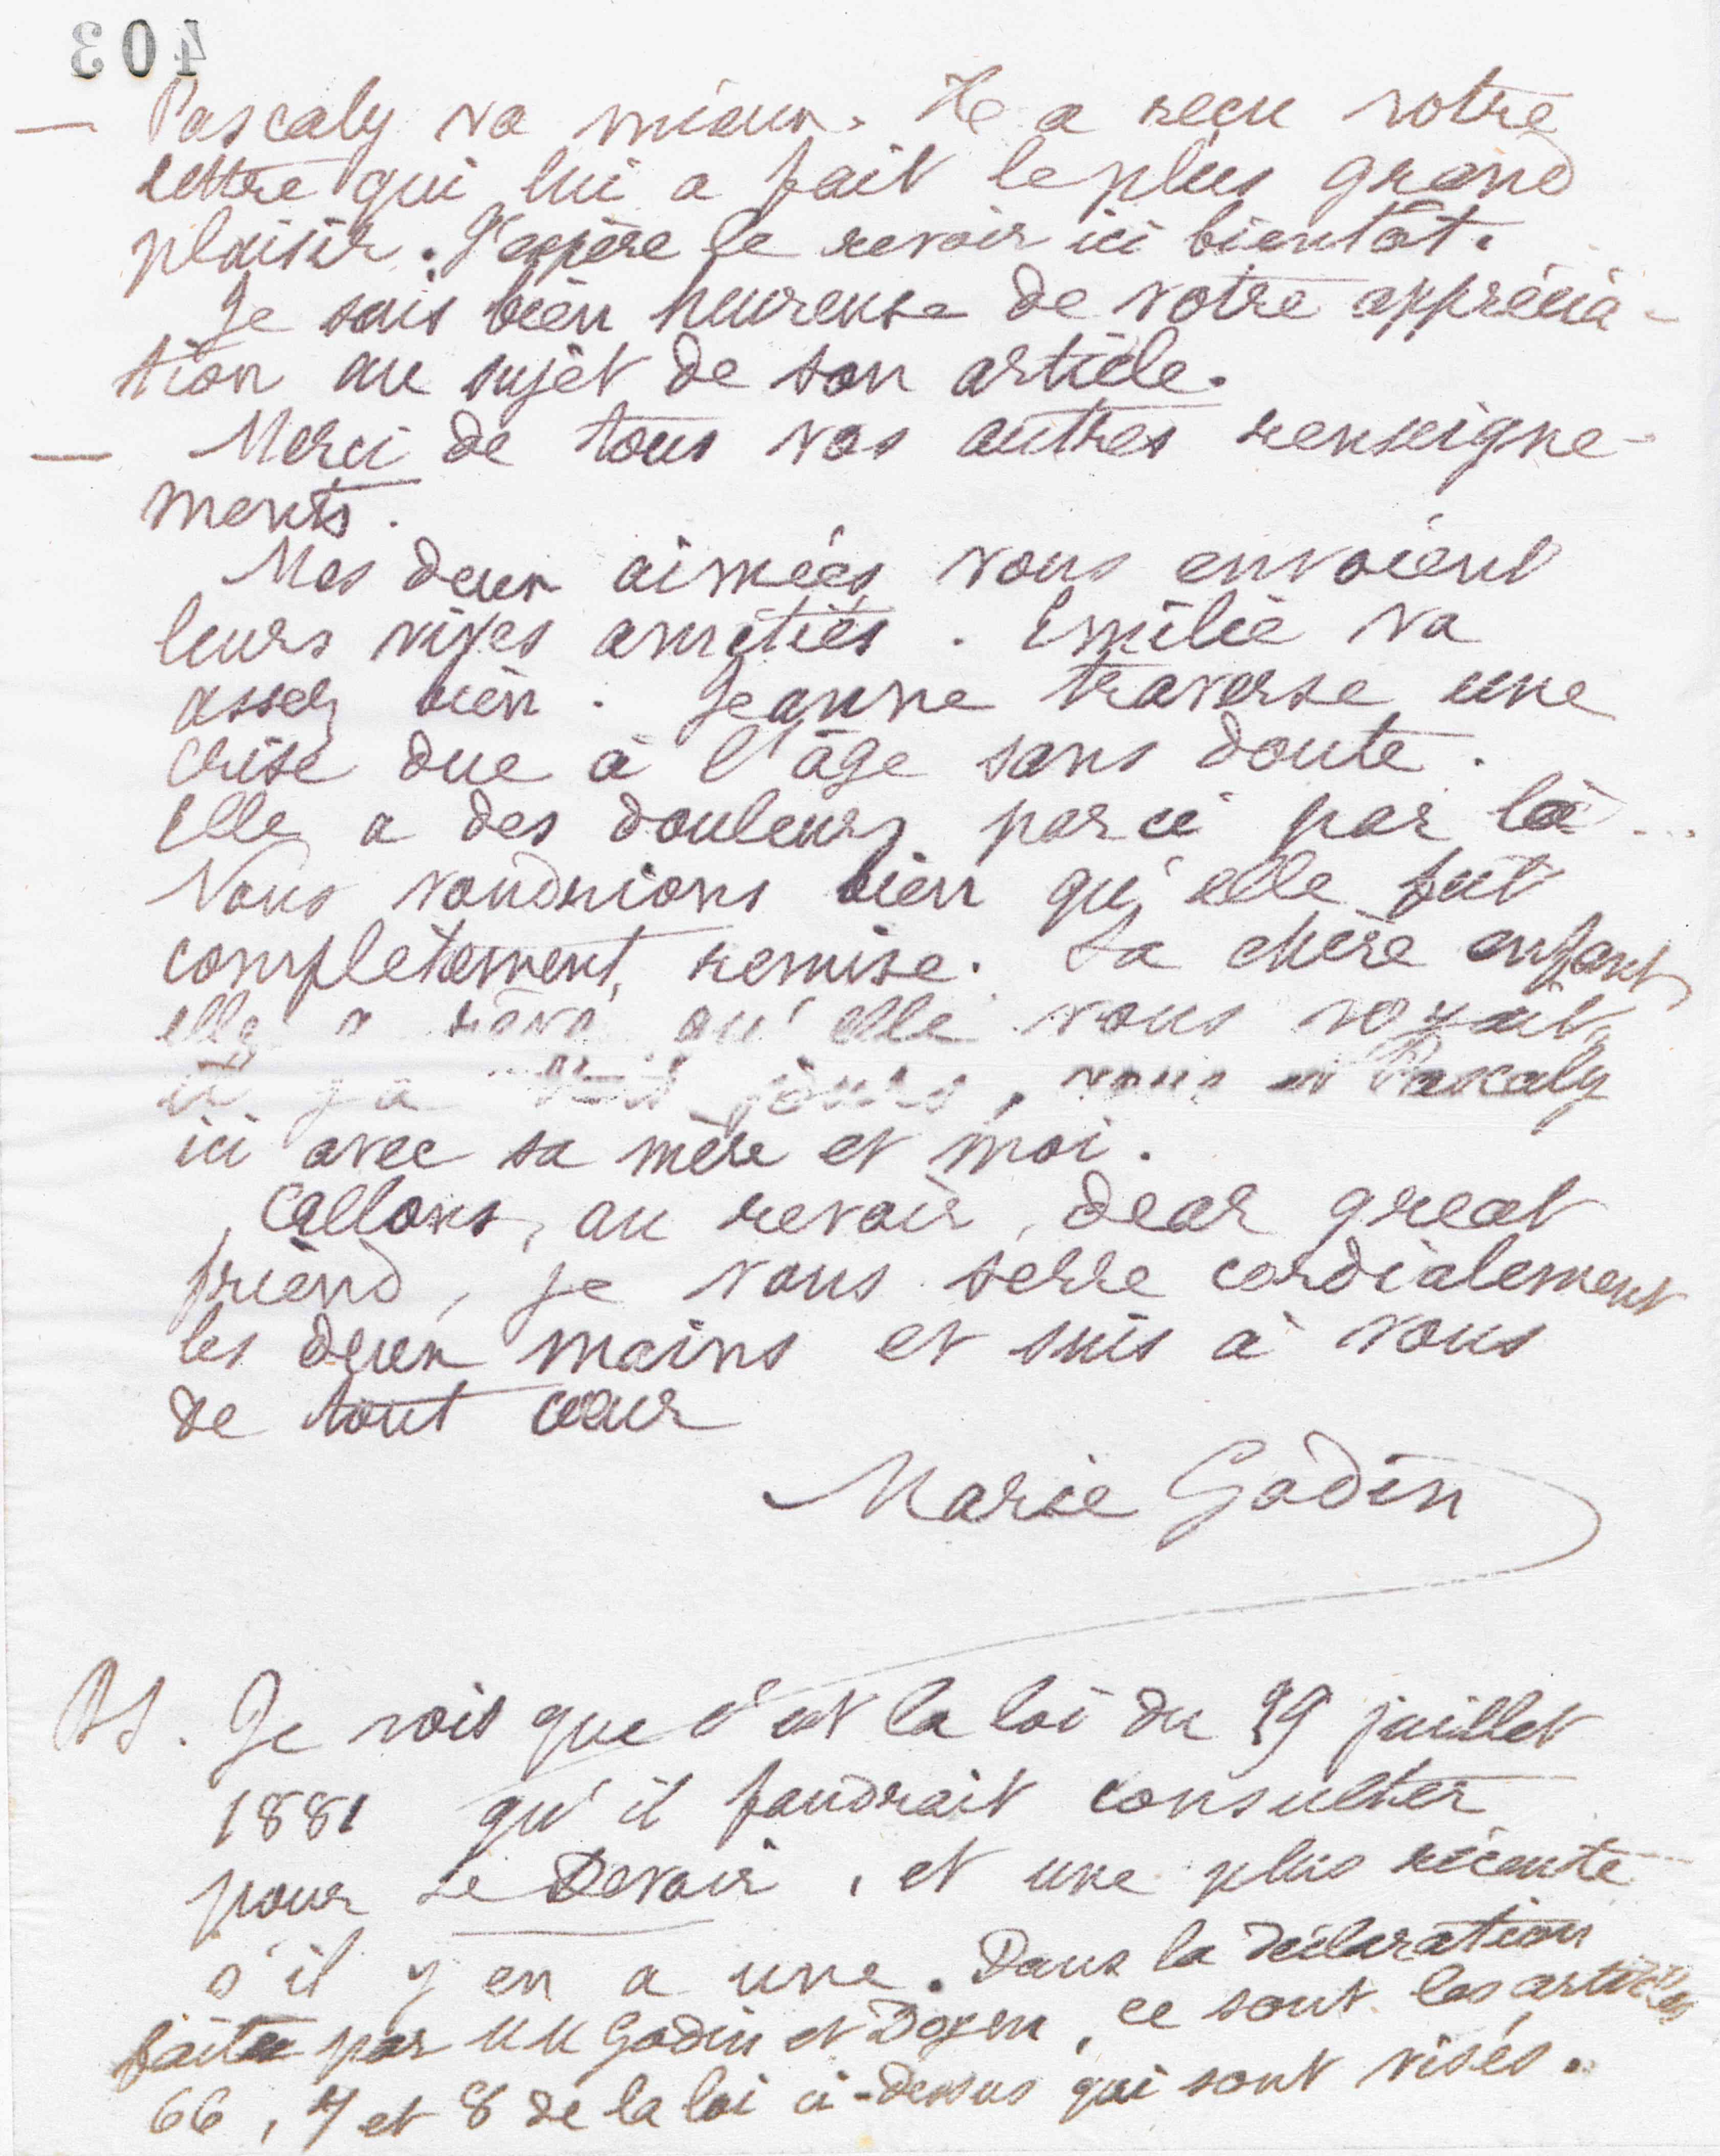 403
— Pascaly va mieux. Il a reçu votre
lettre qui lui a fait le plus grand
plaisir. J'espère le revoir ici bientôt.
Je suis bien heureuse de votre apprécia-
tion au sujet de son article.
— Merci de tous vos autres renseigne-
ments.
Mes deux aimées vous envoient
leurs vives amitiés. Emilie va
assez bien. Jeanne traverse une
crise due à l'âge sans doute.
Elle a des douleurs par ci par là...
Nous voudrions bien qu'elle fut
complètement remise. La chère enfant
elle a rêvé qu'elle vous voyait,
il y a jours, vous et Pascaly
ici avec sa mère et moi.
Allons, au revoir, dear great
friend, je vous serre cordialement
les deux mains et suis à vous
de tout cœur
Marie Godin
PS. Je vois que c'est la loi du 29 juillet
1881 qu'il faudrait consulter
pour Le Devoir, et une plus récente
s'il y en a une. Dans la déclaration
faite par MM Godin et Doyen, ce sont les articles
66, 7 et 8 de la loi ci-dessus qui sont visés.